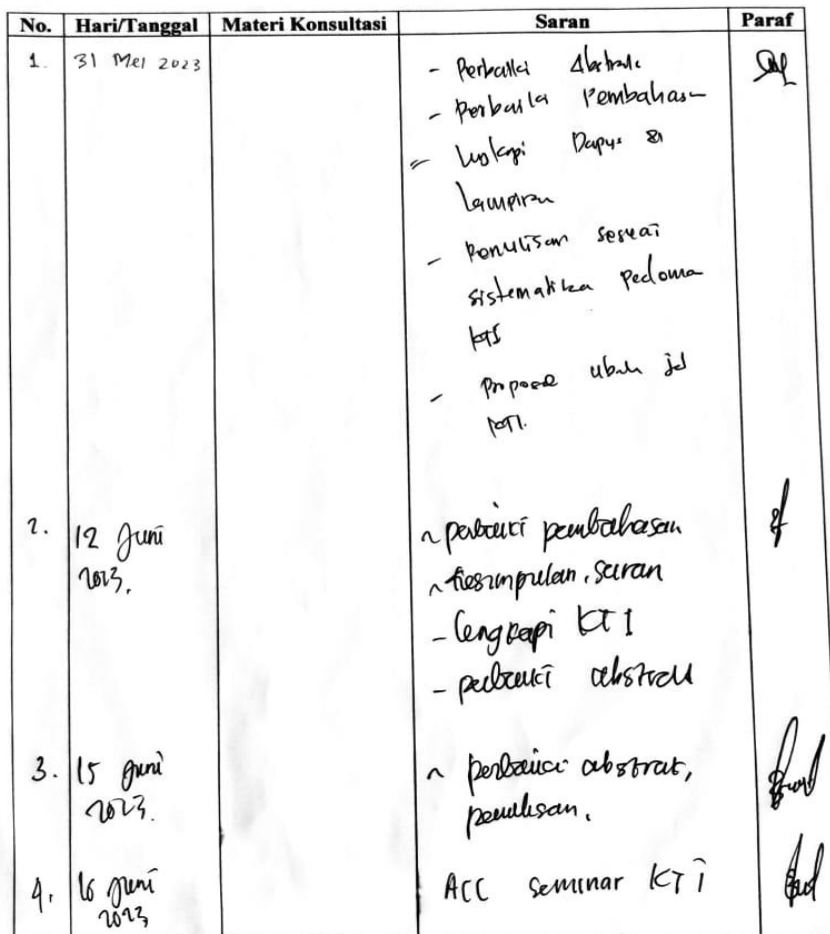 No. Hari/Tanggal Materi Konsultasi Saran Paraf
1. 31 Mei 2023 - Perbaiki Abstrak
- Perbaiki Pembahasan
- Lengkapi Dapus &
Lampiran
- Penulisan sesuai
sistematika Pedoman
KTI
- Proposal ubah jd
KTI.
2. 12 Juni ~ perbaiki pembahasan
2023. ~ kesimpulan, saran
- lengkapi KTI
- perbaiki abstrak
3. 15 Juni ~ perbaiki abstrak,
2023. penulisan.
4. 16 Juni ACC seminar KTI
2023